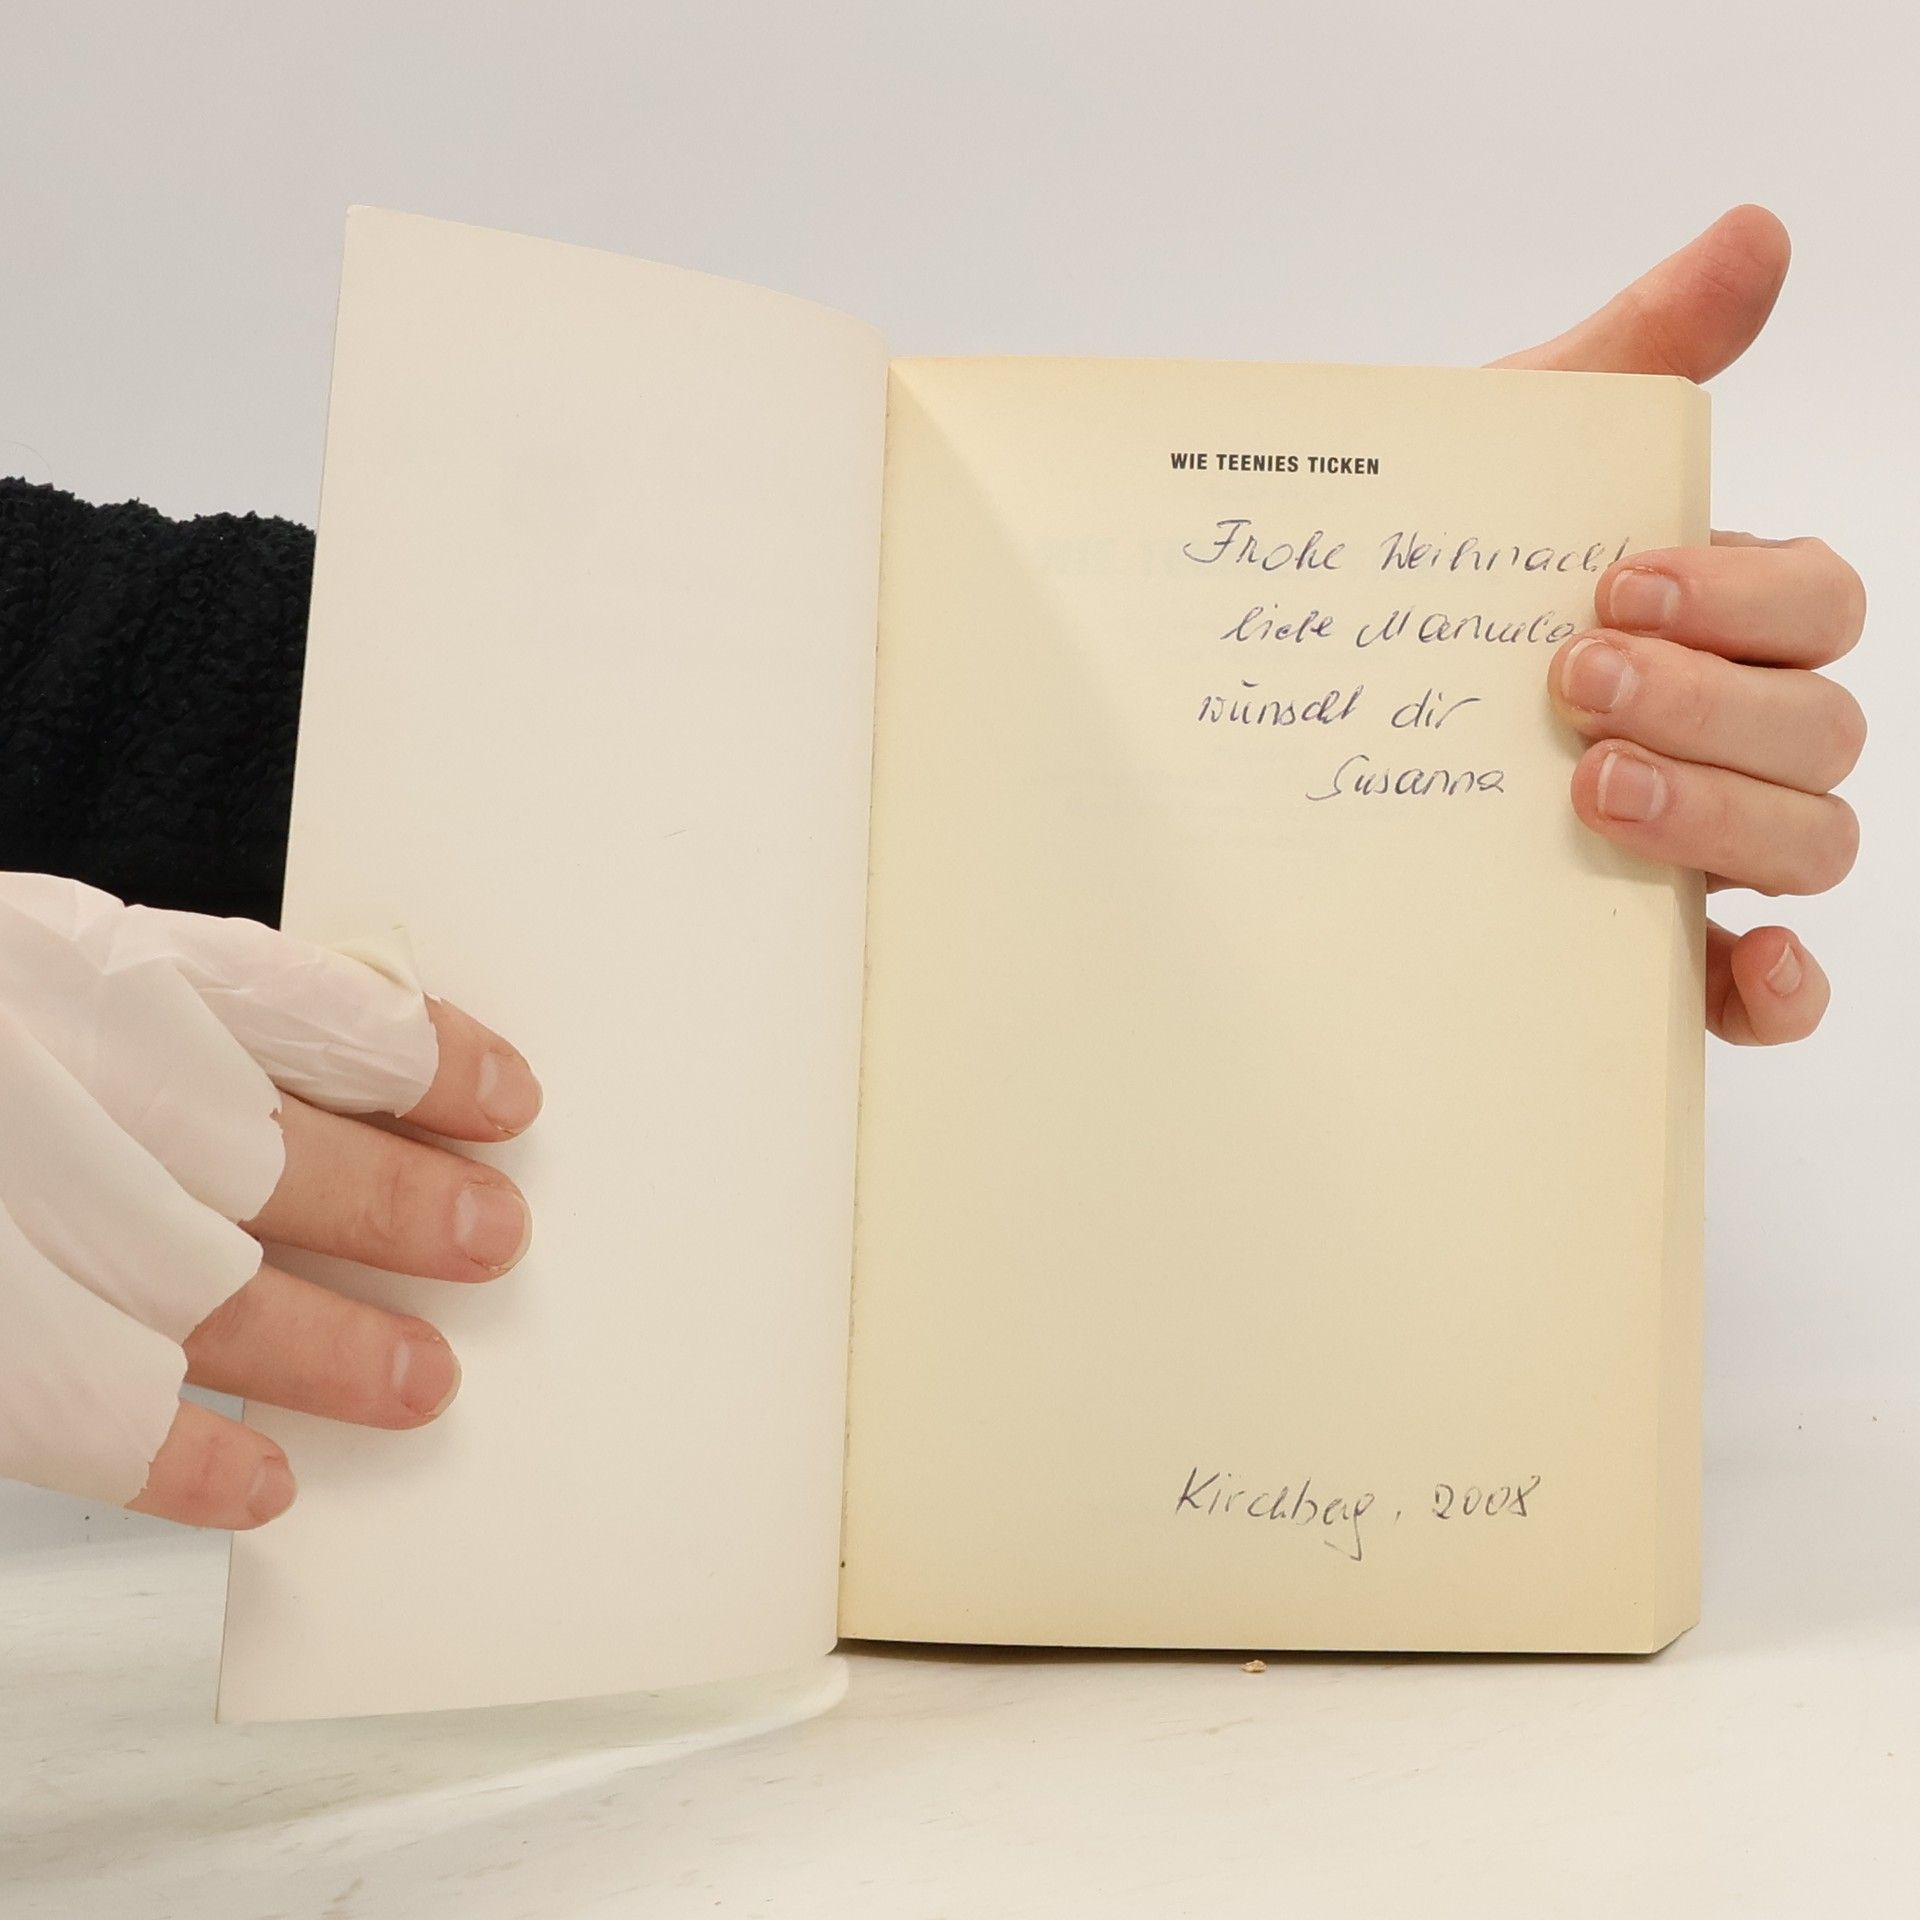 WIE TEENIES TICKEN
Frohe Weihnacht
liebe Manuela
wünscht dir
Susanna
Kirchberg, 2008